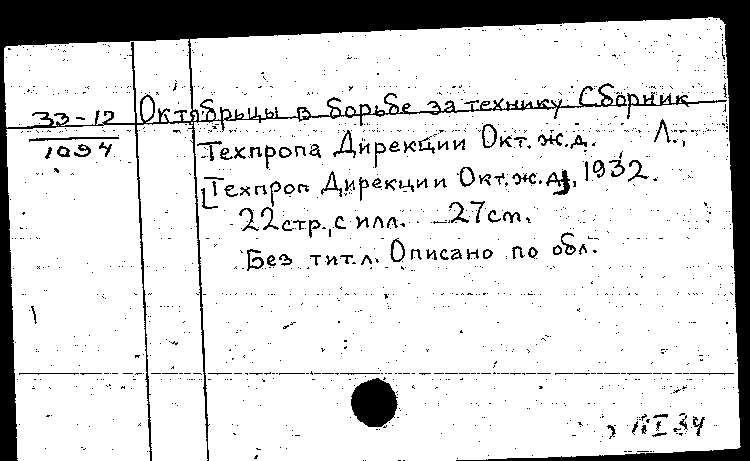 33-12 Октябрьцы в борьбе за технику Сборник
1094 Техпропа Дирекции Окт.ж.д. Л.,
[Техпроп Дирекции Окт.ж.д], 1932.
22стр., с илл. 27см.
Без тит.л. Описано по обл.
34